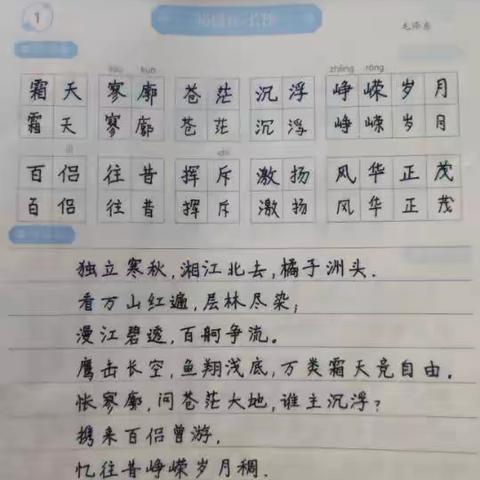 1
沁园春·长沙
毛泽东
liáo kuò
zhēng róng
霜天 寥廓 苍茫 沉浮 峥嵘岁月
霜天 寥廓 苍茫 沉浮 峥嵘岁月
lǚ
chì
百侣 往昔 挥斥 激扬 风华正茂
百侣 往昔 挥斥 激扬 风华正茂
独立寒秋,湘江北去,橘子洲头.
看万山红遍,层林尽染;
漫江碧透,百舸争流。
鹰击长空,鱼翔浅底,万类霜天竞自由.
怅寥廓,问苍茫大地,谁主沉浮?
携来百侣曾游.
忆往昔峥嵘岁月稠.